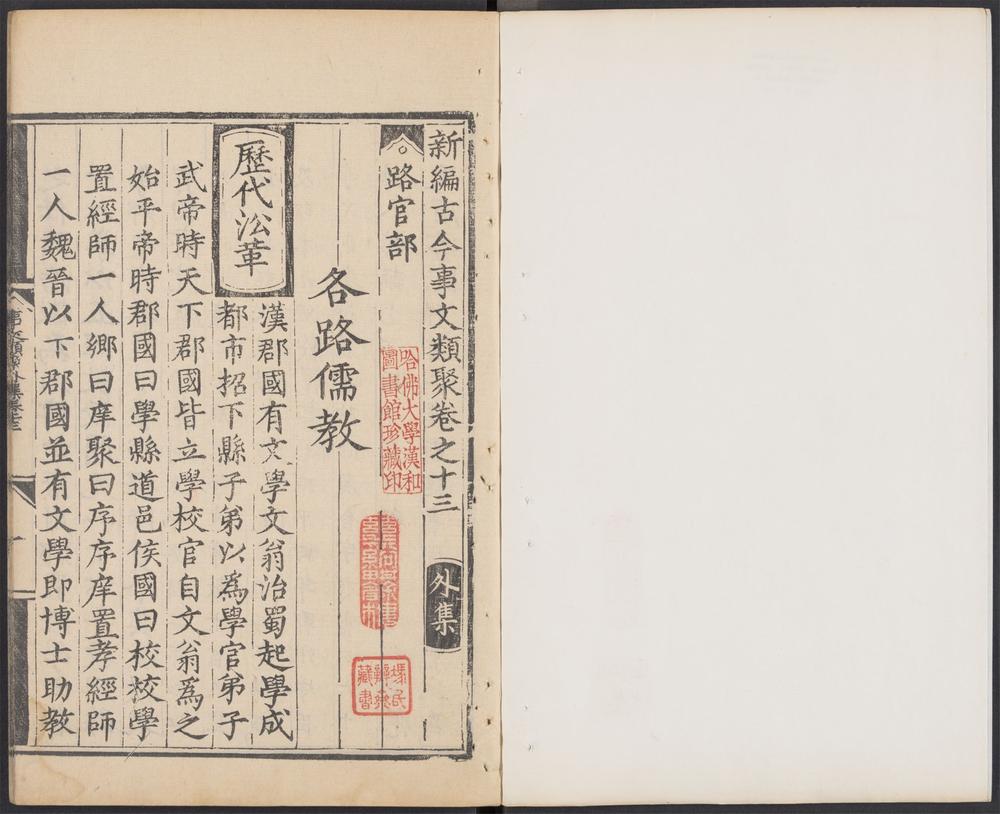 新編古今事文類聚卷之十三
外集
路官部
各路儒教
歷代㳂革
漢郡國有文學文翁治蜀起學成
都市招下縣子弟以爲學官弟子
武帝時天下郡國皆立學校官自文翁爲之
始平帝時郡國曰學縣道邑侯國曰校校學
置經師一人鄉曰庠聚曰序序庠置孝經師
一人魏晉以下郡國並有文學即博士助教
哈佛大學漢和
圖書館珍藏印
藏書